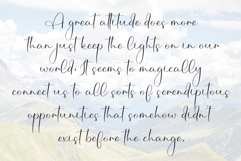 A great attitude does more
than just keep the lights on in our
world. It seems to magically
connect us to all sorts of serendipitous
opportunities that somehow didn't
exist before the change.